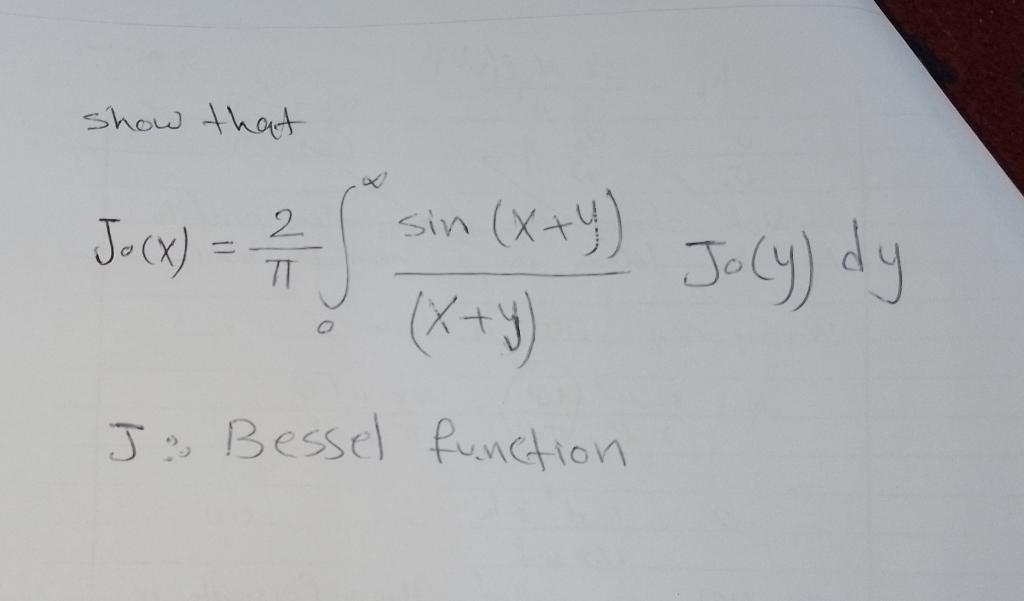 show that
J₀(x) = 2/π ∫₀^∞ sin (x+y)/(x+y) J₀(y) dy
J : Bessel function